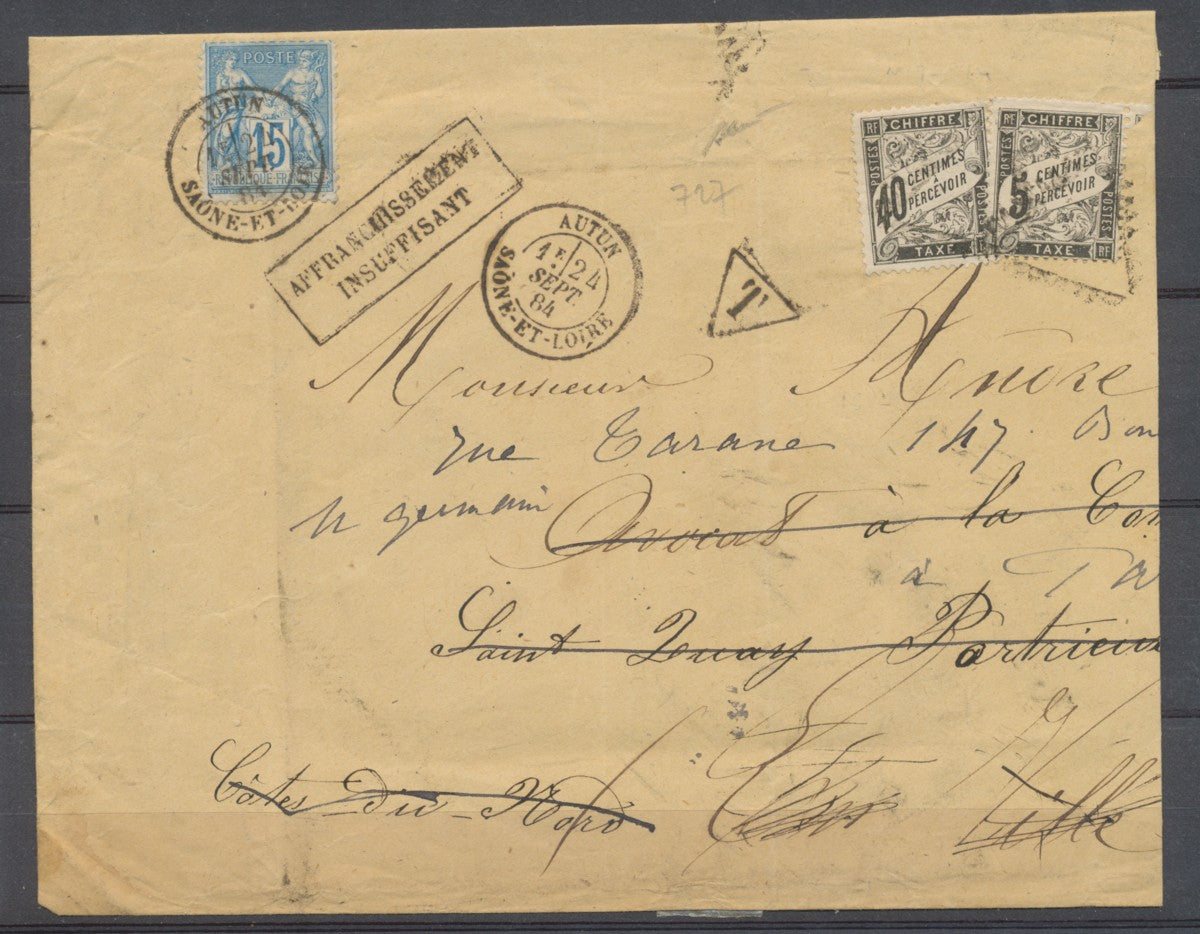 POSTE
15
RÉPUBLIQUE FRANÇAISE
AUTUN
SEPT
SAÔNE-ET-LOIRE
AFFRANCHISSEMENT
INSUFFISANT
AUTUN
1E 24
SEPT
84
SAÔNE-ET-LOIRE
T
727
RF CHIFFRE
POSTES
40 CENTIMES
PERCEVOIR
POSTES
TAXE
RF CHIFFRE
POSTES
5 CENTIMES
À PERCEVOIR
POSTES
TAXE RF
Monsieur Andre
rue Tarane 147 Bon
germain Avocat à la Cou
à Pa
Saint Quay Portrieux
Côtes-Du-Nord
Ville